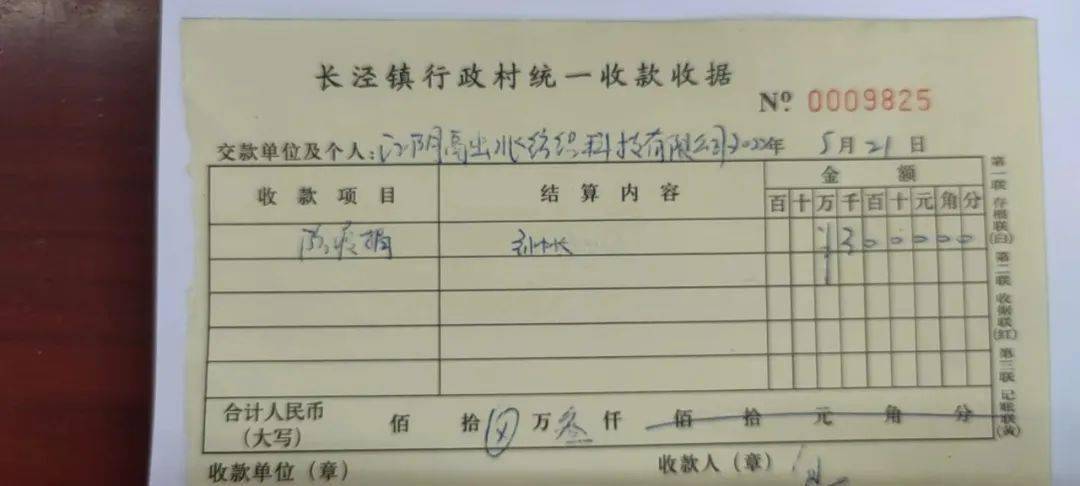 长泾镇行政村统一收款收据
Nº 0009825
交款单位及个人:江阴高出水纺织科技有限公司 2022年 5月21日
收款项目 结算内容 金额
百十万千百十元角分
防疫捐 ¥300000
合计人民币(大写) 佰 拾 ⊗ 万 叁 仟 佰 拾 元 角 分
收款单位(章) 收款人(章)
第一联 存根联(白) 第二联 收据联(红) 第三联 记账联(黄)